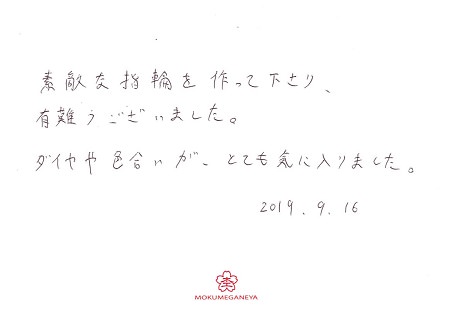 素敵な指輪を作って下さり、
有難うございました。
ダイヤや色合いが、とても気に入りました。
2019.9.16
杢
MOKUMEGANEYA